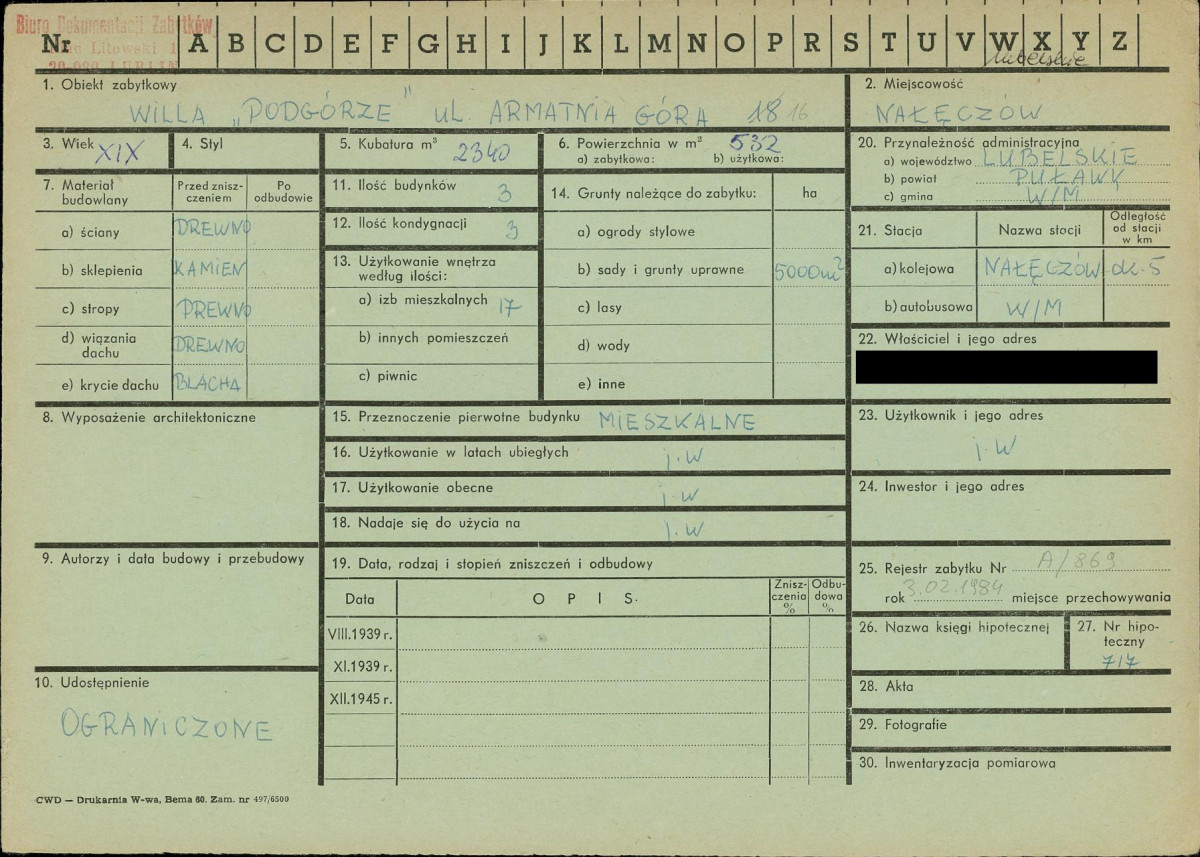 Biuro Dokumentacji Zabytków
Plac Litewski 1
20-080 LUBLIN
Nr A B C D E F G H I J K L M N O P R S T U V W X Y Z
lubelskie
1. Obiekt zabytkowy
WILLA "PODGÓRZE" ul. ARMATNIA GÓRA 18 16
2. Miejscowość
NAŁĘCZÓW
3. Wiek XIX
4. Styl
5. Kubatura m³ 2340
6. Powierzchnia w m² 532
a) zabytkowa: b) użytkowa:
7. Materiał budowlany
Przed zniszczeniem
Po odbudowie
a) ściany DREWNO
b) sklepienia KAMIEŃ
c) stropy DREWNO
d) wiązania dachu DREWNO
e) krycie dachu BLACHA
8. Wyposażenie architektoniczne
9. Autorzy i data budowy i przebudowy
10. Udostępnienie
OGRANICZONE
11. Ilość budynków 3
12. Ilość kondygnacji 3
13. Użytkowanie wnętrza według ilości:
a) izb mieszkalnych 17
b) innych pomieszczeń
c) piwnic
14. Grunty należące do zabytku: ha
a) ogrody stylowe
b) sady i grunty uprawne 5000m²
c) lasy
d) wody
e) inne
15. Przeznaczenie pierwotne budynku MIESZKALNE
16. Użytkowanie w latach ubiegłych j.w
17. Użytkowanie obecne j.w
18. Nadaje się do użycia na j.w
19. Data, rodzaj i stopień zniszczeń i odbudowy
Data OPIS. Zniszczenia % Odbudowa %
VIII.1939 r.
XI.1939 r.
XII.1945 r.
20. Przynależność administracyjna
a) województwo LUBELSKIE
b) powiat PUŁAWY
c) gmina W/M
21. Stacja Nazwa stocji Odległość od stacji w km
a) kolejowa NAŁĘCZÓW ok. 5
b) autobusowa W/M
22. Właściciel i jego adres
23. Użytkownik i jego adres
j.w
24. Inwestor i jego adres
25. Rejestr zabytku Nr A/869
rok 3.02.1984 miejsce przechowywania
26. Nazwa księgi hipotecznej
27. Nr hipoteczny
717
28. Akta
29. Fotografie
30. Inwentaryzacja pomiarowa
CWD — Drukarnia W-wa, Bema 60. Zam. nr 497/6500